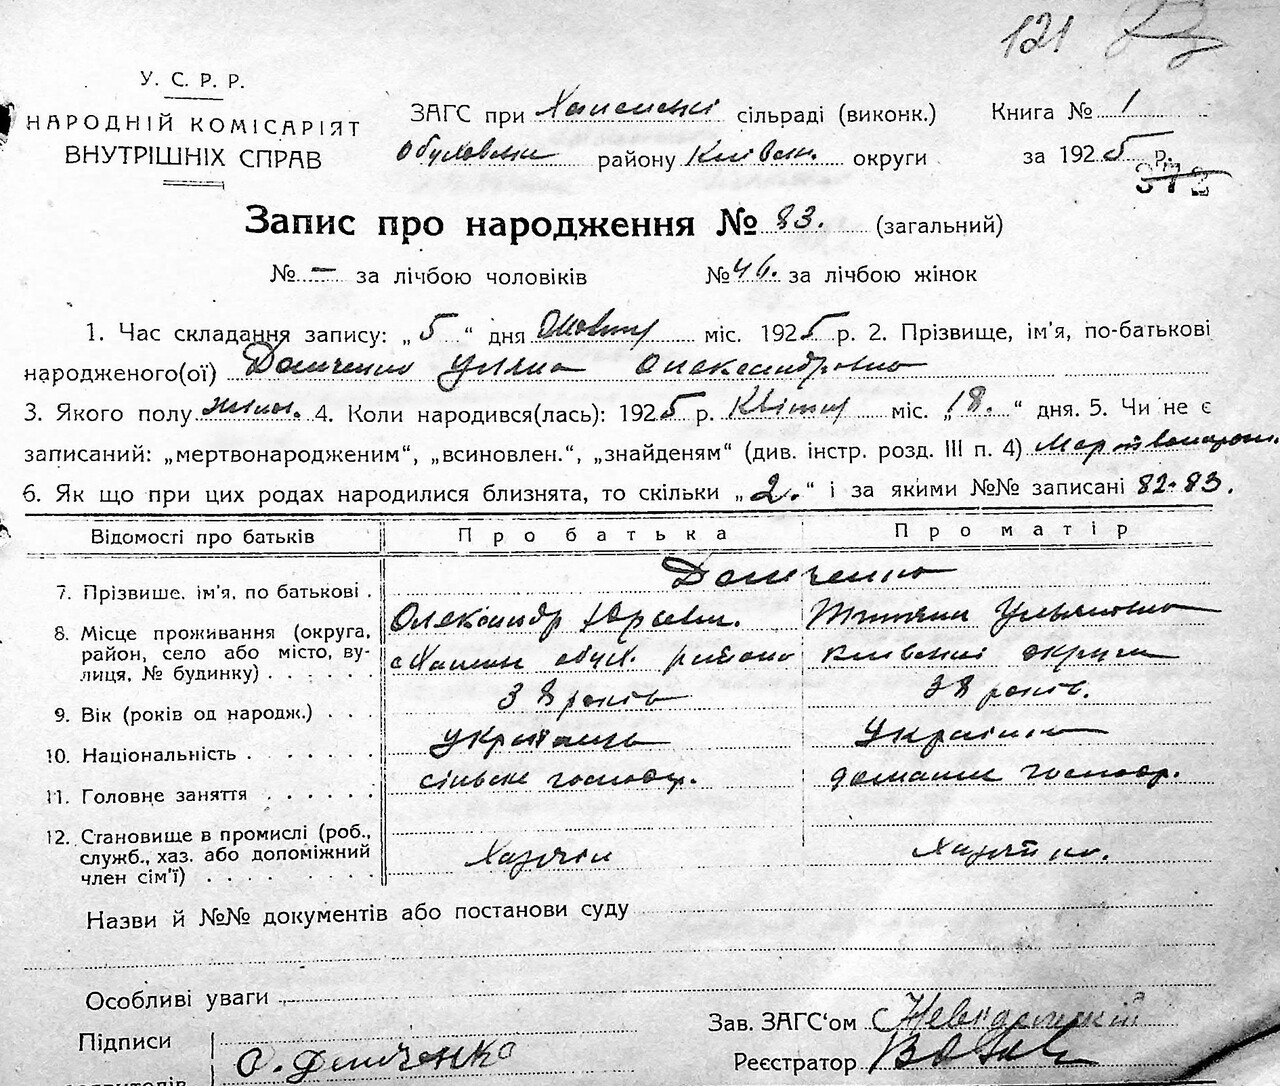 121
У. С. Р. Р.
НАРОДНІЙ КОМІСАРІЯТ
ВНУТРІШНІХ СПРАВ
ЗАГС при сільраді (виконк.)
району Київськ. округи
Книга № 1
за 1925 р.
372
Запис про народження № 83. (загальний)
№ — за лічбою чоловіків № 46. за лічбою жінок
1. Час складання запису: „5 “ дня міс. 1925 р. 2. Прізвище, ім'я, по-батькові
народженого(ої) Демченко Уляна Олександровна
3. Якого полу жіноч. 4. Коли народився(лась): 1925 р. Квітня міс. „18.“ дня. 5. Чи не є
записаний: „мертвонародженим“, „всиновлен.“, „знайденям“ (див. інстр. розд. III п. 4)
6. Як що при цих родах народилися близнята, то скільки „2.“ і за якими №№ записані 82-83.
Відомості про батьків
Про батька
Про матір
7. Прізвише, ім'я, по батькові .
Демченко
Олександр
Тетяна Ульяновна
8. Місце проживання (округа, район, село або місто, вулиця, № будинку) . . . . . .
району
Київської округи
9. Вік (років од народж.) . . .
38 років
38 років.
10. Національність . . . . . .
Українець
Українка
11. Головне заняття . . . . . .
сільське господар.
домашнє господр.
12. Становище в промислі (роб., служб., хаз. або допоміжний член сім'ї) . . . . . . . .
Хазяїн
Хазяйка.
Назви й №№ документів або постанови суду
Особливі уваги
Підписи
О. Демченко
Зав. ЗАГС'ом
Реєстратор